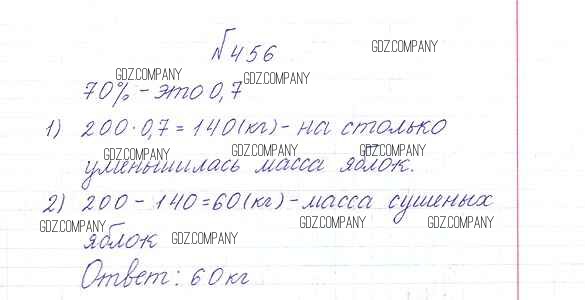 №456
GDZ.COMPANY
GDZ.COMPANY
GDZ.COMPANY
70% - это 0,7
1) 200·0,7=140(кг) - на столько
GDZ.COMPANY
GDZ.COMPANY
GDZ.COMPANY
уменьшилась масса яблок.
2) 200 - 140=60(кг) - масса сушеных
GDZ.COMPANY
GDZ.COMPANY
GDZ.COMPANY
яблок
GDZ.COMPANY
Ответ: 60кг